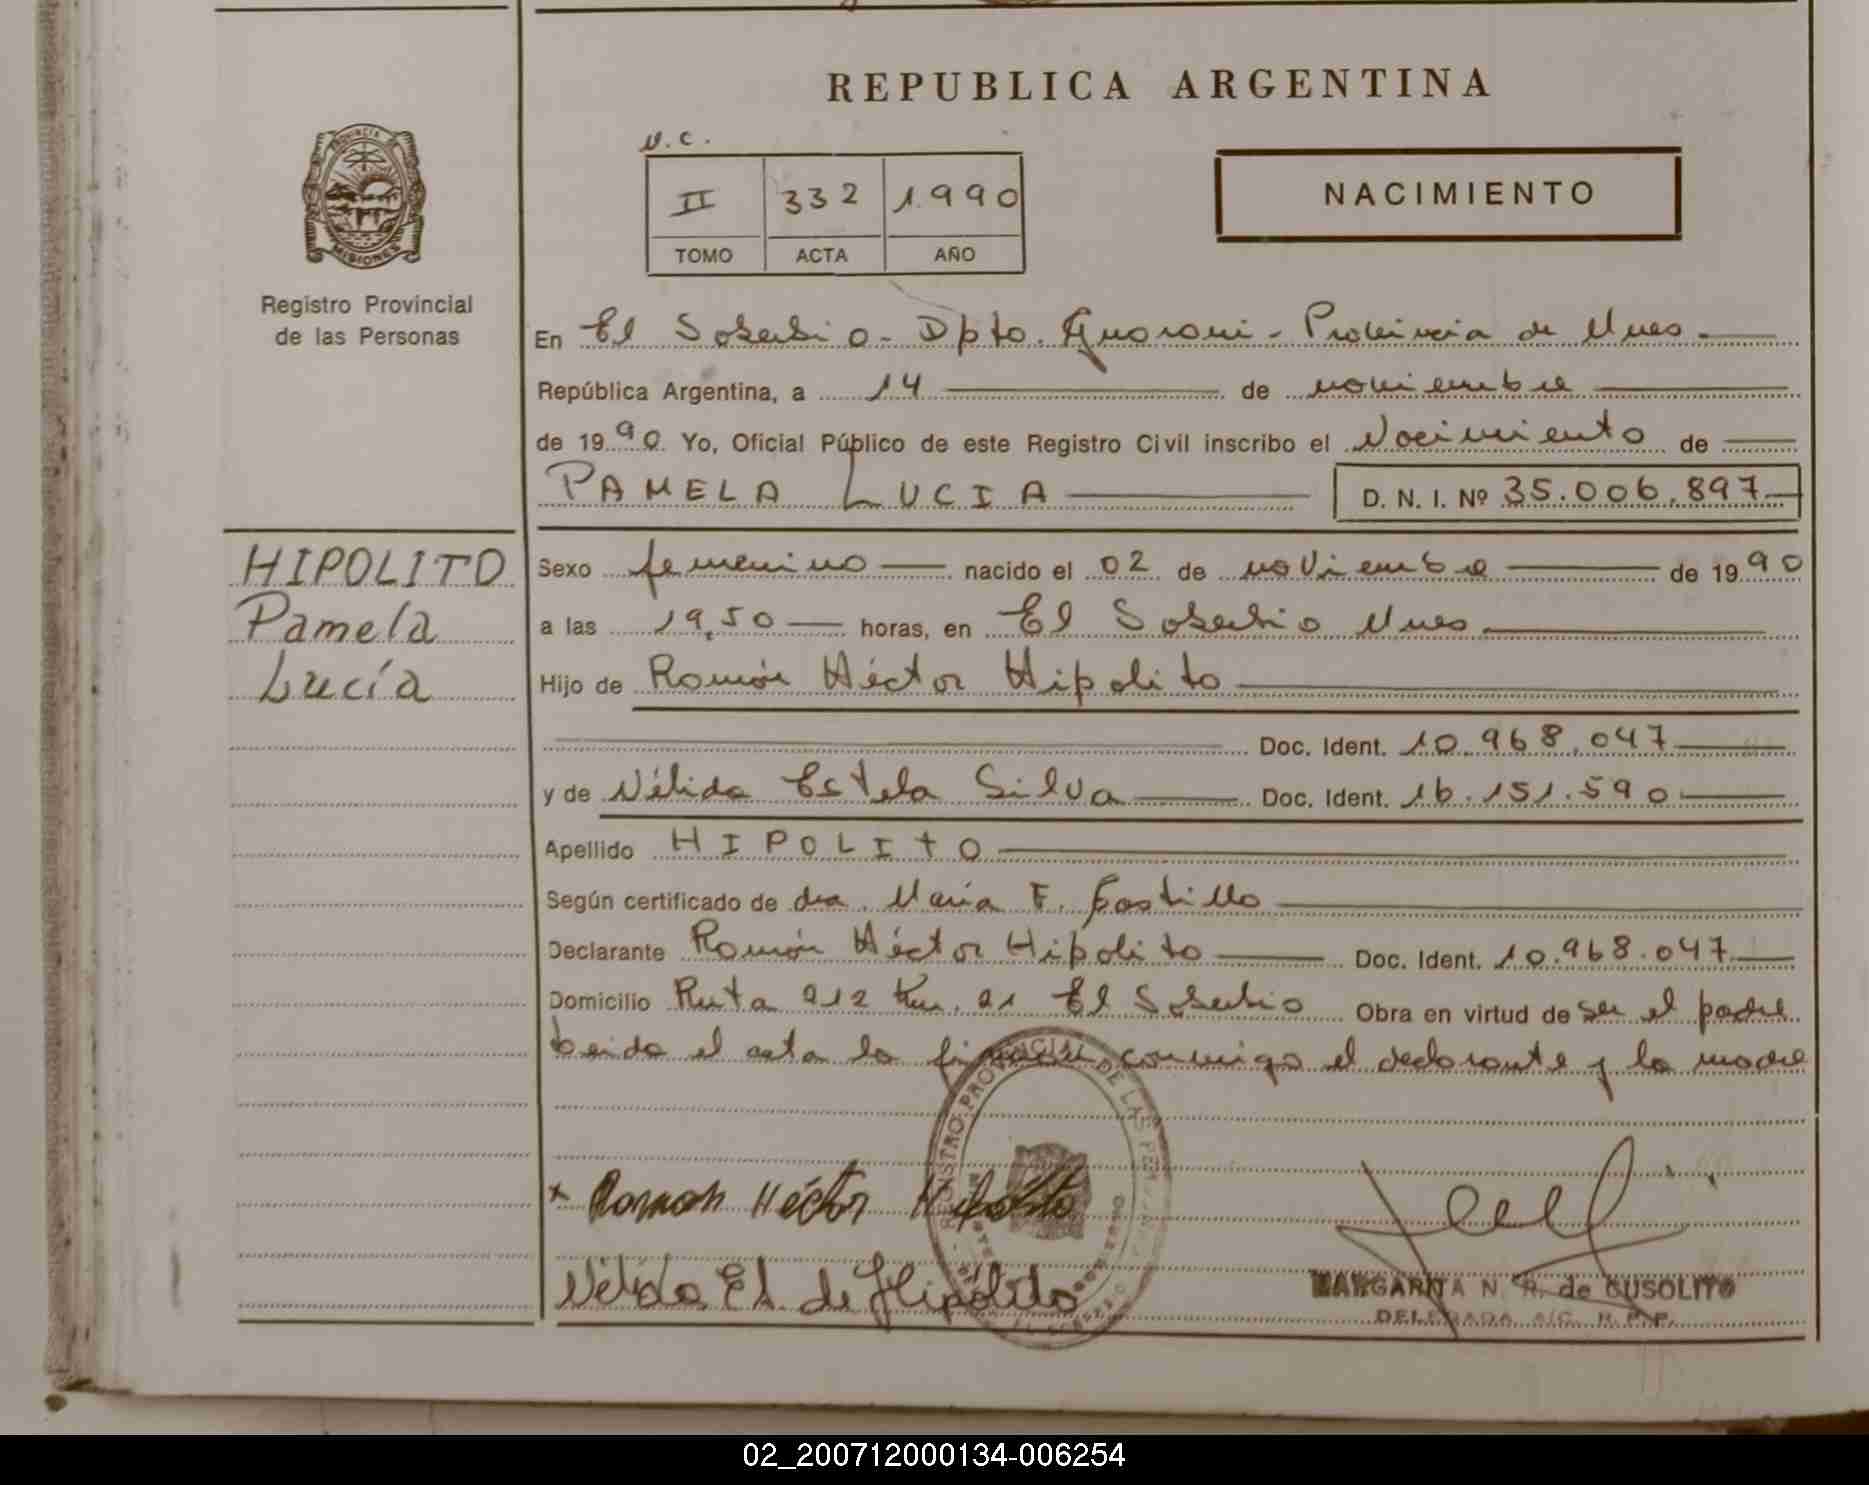 REPUBLICA ARGENTINA
N.C.
II 332 1990
TOMO ACTA AÑO
NACIMIENTO
PROVINCIA DE
MISIONES
Registro Provincial
de las Personas
En El Soberbio - Dpto. Guarani - Provincia de Mnes
República Argentina, a 14 de noviembre
de 1990 Yo, Oficial Público de este Registro Civil inscribo el Nacimiento de
PAMELA LUCIA D. N. I. Nº 35.006.897
HIPOLITO
Pamela
Lucía
Sexo femenino nacido el 02 de noviembre de 1990
a las 19,50 horas, en El Soberbio Mnes
Hijo de Ramón Héctor Hipolito
Doc. Ident. 10.968.047
y de Nélida Estela Silva Doc. Ident. 16.151.590
Apellido HIPOLITO
Según certificado de dra. Maria F. Castillo
Declarante Ramón Héctor Hipolito Doc. Ident. 10.968.047
Domicilio Ruta 212 Km. 21 El Soberbio Obra en virtud de ser el padre
Leida el acta la firman conmigo el declarante y la madre
REGISTRO PROVINCIAL DE LAS PER
x Ramon Héctor Hipólito
Nélida Et. de Hipólito
MARGARITA N. R. de CUSOLITO
DELEGADA A/C. R.P.P.
02_200712000134-006254